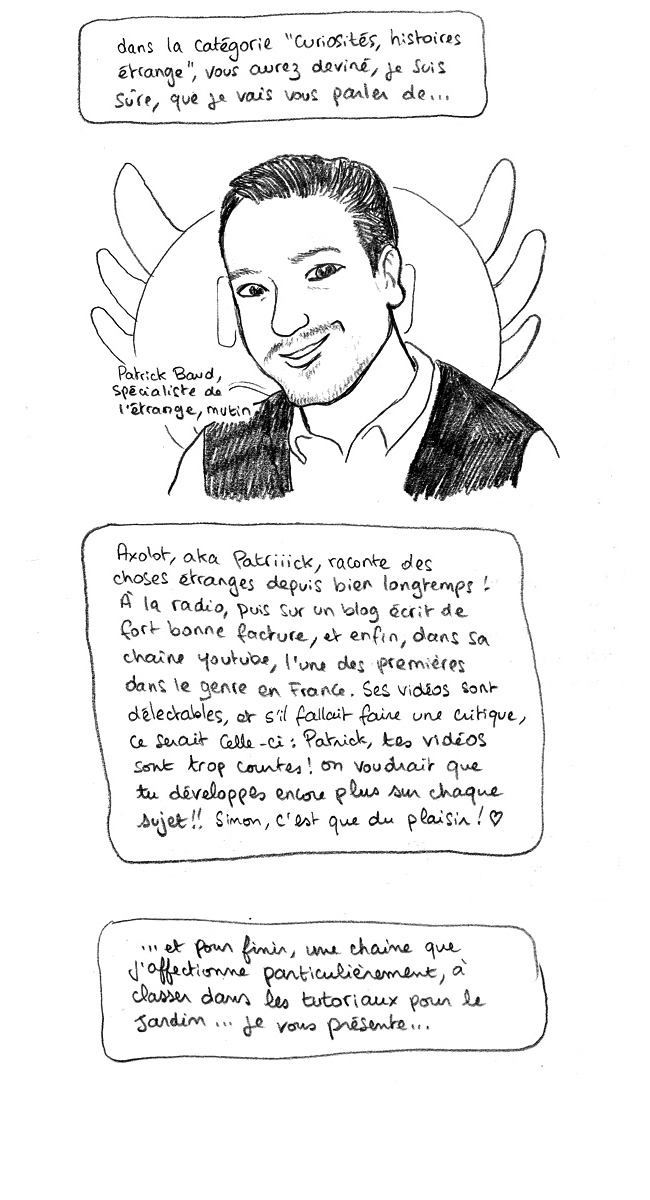 dans la catégorie "Curiosités, histoires
étrange", vous aurez deviné, je suis
sûre, que je vais vous parler de...
Patrick Baud,
spécialiste de
l'étrange, mutin
Axolot, aka Patriiick, raconte des
choses étranges depuis bien longtemps !
À la radio, puis sur un blog écrit de
fort bonne facture, et enfin, dans sa
chaîne youtube, l'une des premières
dans le genre en France. Ses vidéos sont
délectables, et s'il fallait faire une critique,
ce serait celle-ci : Patrick, tes vidéos
sont trop courtes ! on voudrait que
tu développes encore plus sur chaque
sujet !! Simon, c'est que du plaisir ! ♡
... et pour finir, une chaine que
j'affectionne particulièrement, à
classer dans les tutoriaux pour le
jardin ... je vous présente...